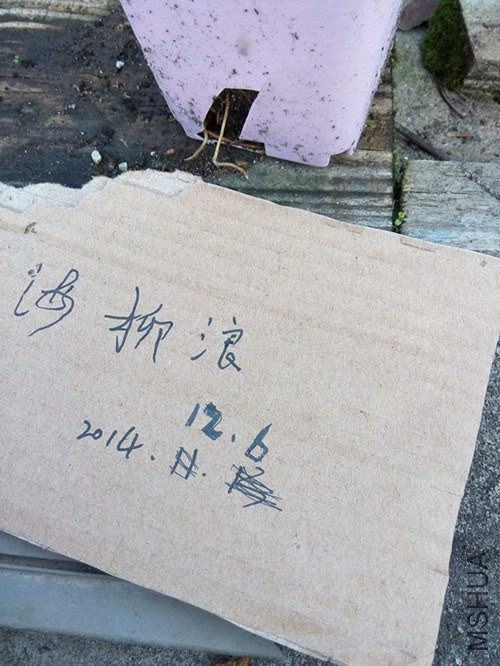 海柳浪
12.6
2014.
MSHUA